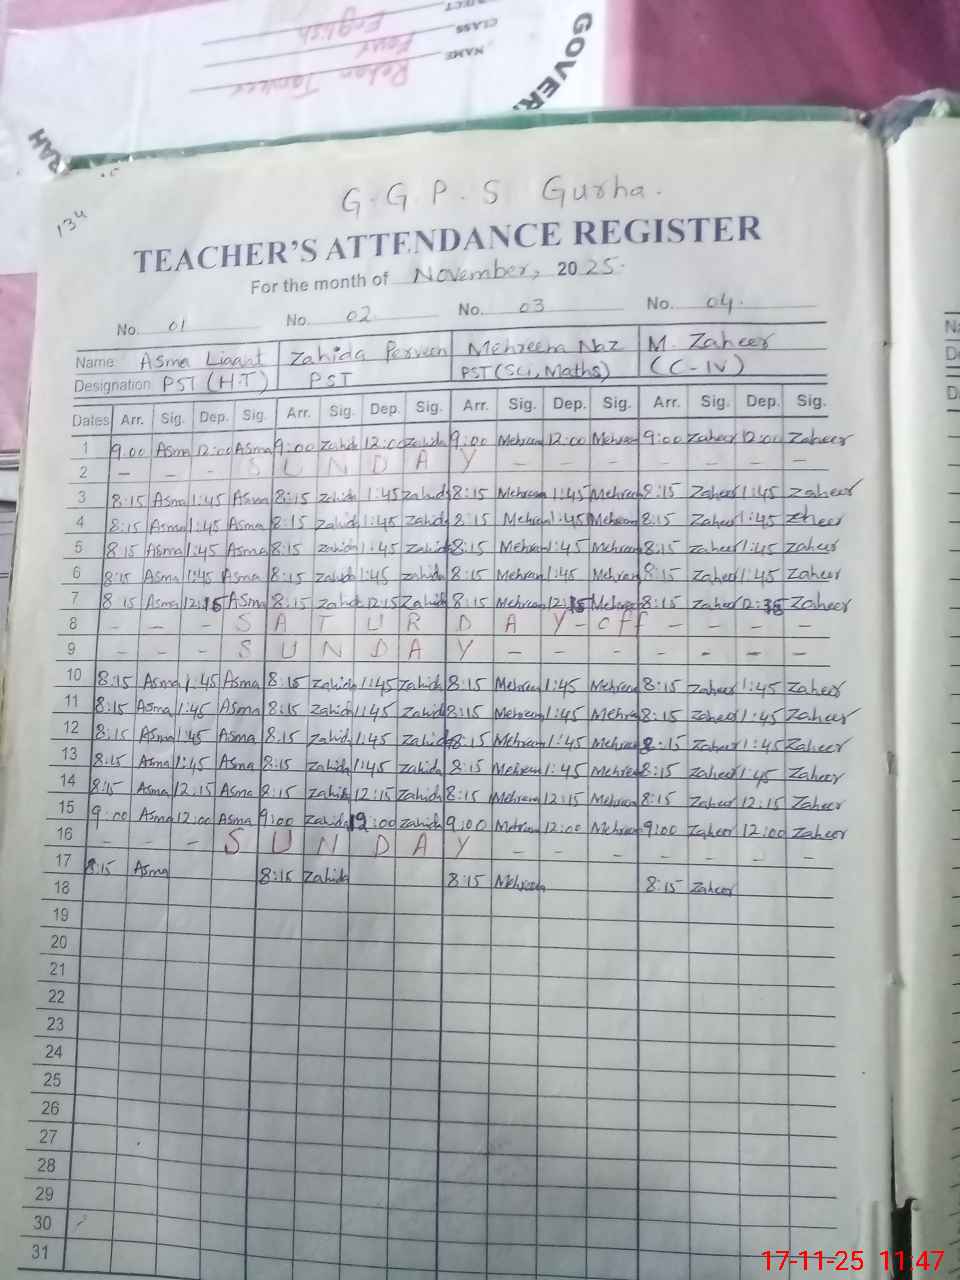 GOVER
RAH
NAME Rohan Tanveer
CLASS Four
English
134
G.G.P.S Gurha.
TEACHER'S ATTENDANCE REGISTER
For the month of November, 2025.
No. 01 No. 02 No. 03 No. 04.
Name: Asma Liaqat Zahida Perveen Mehreem Naz M. Zaheer
Designation PST (H.T) PST PST (Sci, Maths) (C-IV)
Dates Arr. Sig. Dep. Sig. Arr. Sig. Dep. Sig. Arr. Sig. Dep. Sig. Arr. Sig. Dep. Sig.
1 9:00 Asma 12:00 Asma 9:00 Zahida 12:00 Zahida 9:00 Mehreem 12:00 Mehreem 9:00 Zaheer 12:00 Zaheer
2 - - - S U N D A Y - - - - - - -
3 8:15 Asma 1:45 Asma 8:15 Zahida 1:45 Zahida 8:15 Mehreem 1:45 Mehreem 8:15 Zaheer 1:45 Zaheer
4 8:15 Asma 1:45 Asma 8:15 Zahida 1:45 Zahida 8:15 Mehreem 1:45 Mehreem 8:15 Zaheer 1:45 Zheer
5 8:15 Asma 1:45 Asma 8:15 Zahida 1:45 Zahida 8:15 Mehreem 1:45 Mehreem 8:15 Zaheer 1:45 Zaheer
6 8:15 Asma 1:45 Asma 8:15 Zahida 1:45 Zahida 8:15 Mehreem 1:45 Mehreem 8:15 Zaheer 1:45 Zaheer
7 8:15 Asma 12:15 Asma 8:15 Zahida 12:15 Zahida 8:15 Mehreem 12:15 Mehreem 8:15 Zaheer Zaheer
8 - - - S A T U R D A Y - off - - - -
9 - - - S U N D A Y - - - - - - -
10 8:15 Asma 1:45 Asma 8:15 Zahida 1:45 Zahida 8:15 Mehreem 1:45 Mehreem 8:15 Zaheer 1:45 Zaheer
11 8:15 Asma 1:45 Asma 8:15 Zahida 1:45 Zahida 8:15 Mehreem 1:45 Mehreem 8:15 Zaheer 1:45 Zaheer
12 8:15 Asma 1:45 Asma 8:15 Zahida 1:45 Zahida 8:15 Mehreem 1:45 Mehreem 8:15 Zaheer 1:45 Zaheer
13 8:15 Asma 1:45 Asma 8:15 Zahida 1:45 Zahida 8:15 Mehreem 1:45 Mehreem 8:15 Zaheer 1:45 Zaheer
14 8:15 Asma 12:15 Asma 8:15 Zahida 12:15 Zahida 8:15 Mehreem 12:15 Mehreem 8:15 Zaheer 12:15 Zaheer
15 9:00 Asma 12:00 Asma 9:00 Zahida 12:00 Zahida 9:00 Mehreem 12:00 Mehreem 9:00 Zaheer 12:00 Zaheer
16 - - - S U N D A Y - - - - - - -
17 8:15 Asma 8:15 Zahida 8:15 Mehreem 8:15 Zaheer
18
19
20
21
22
23
24
25
26
27
28
29
30
31
17-11-25 11:47